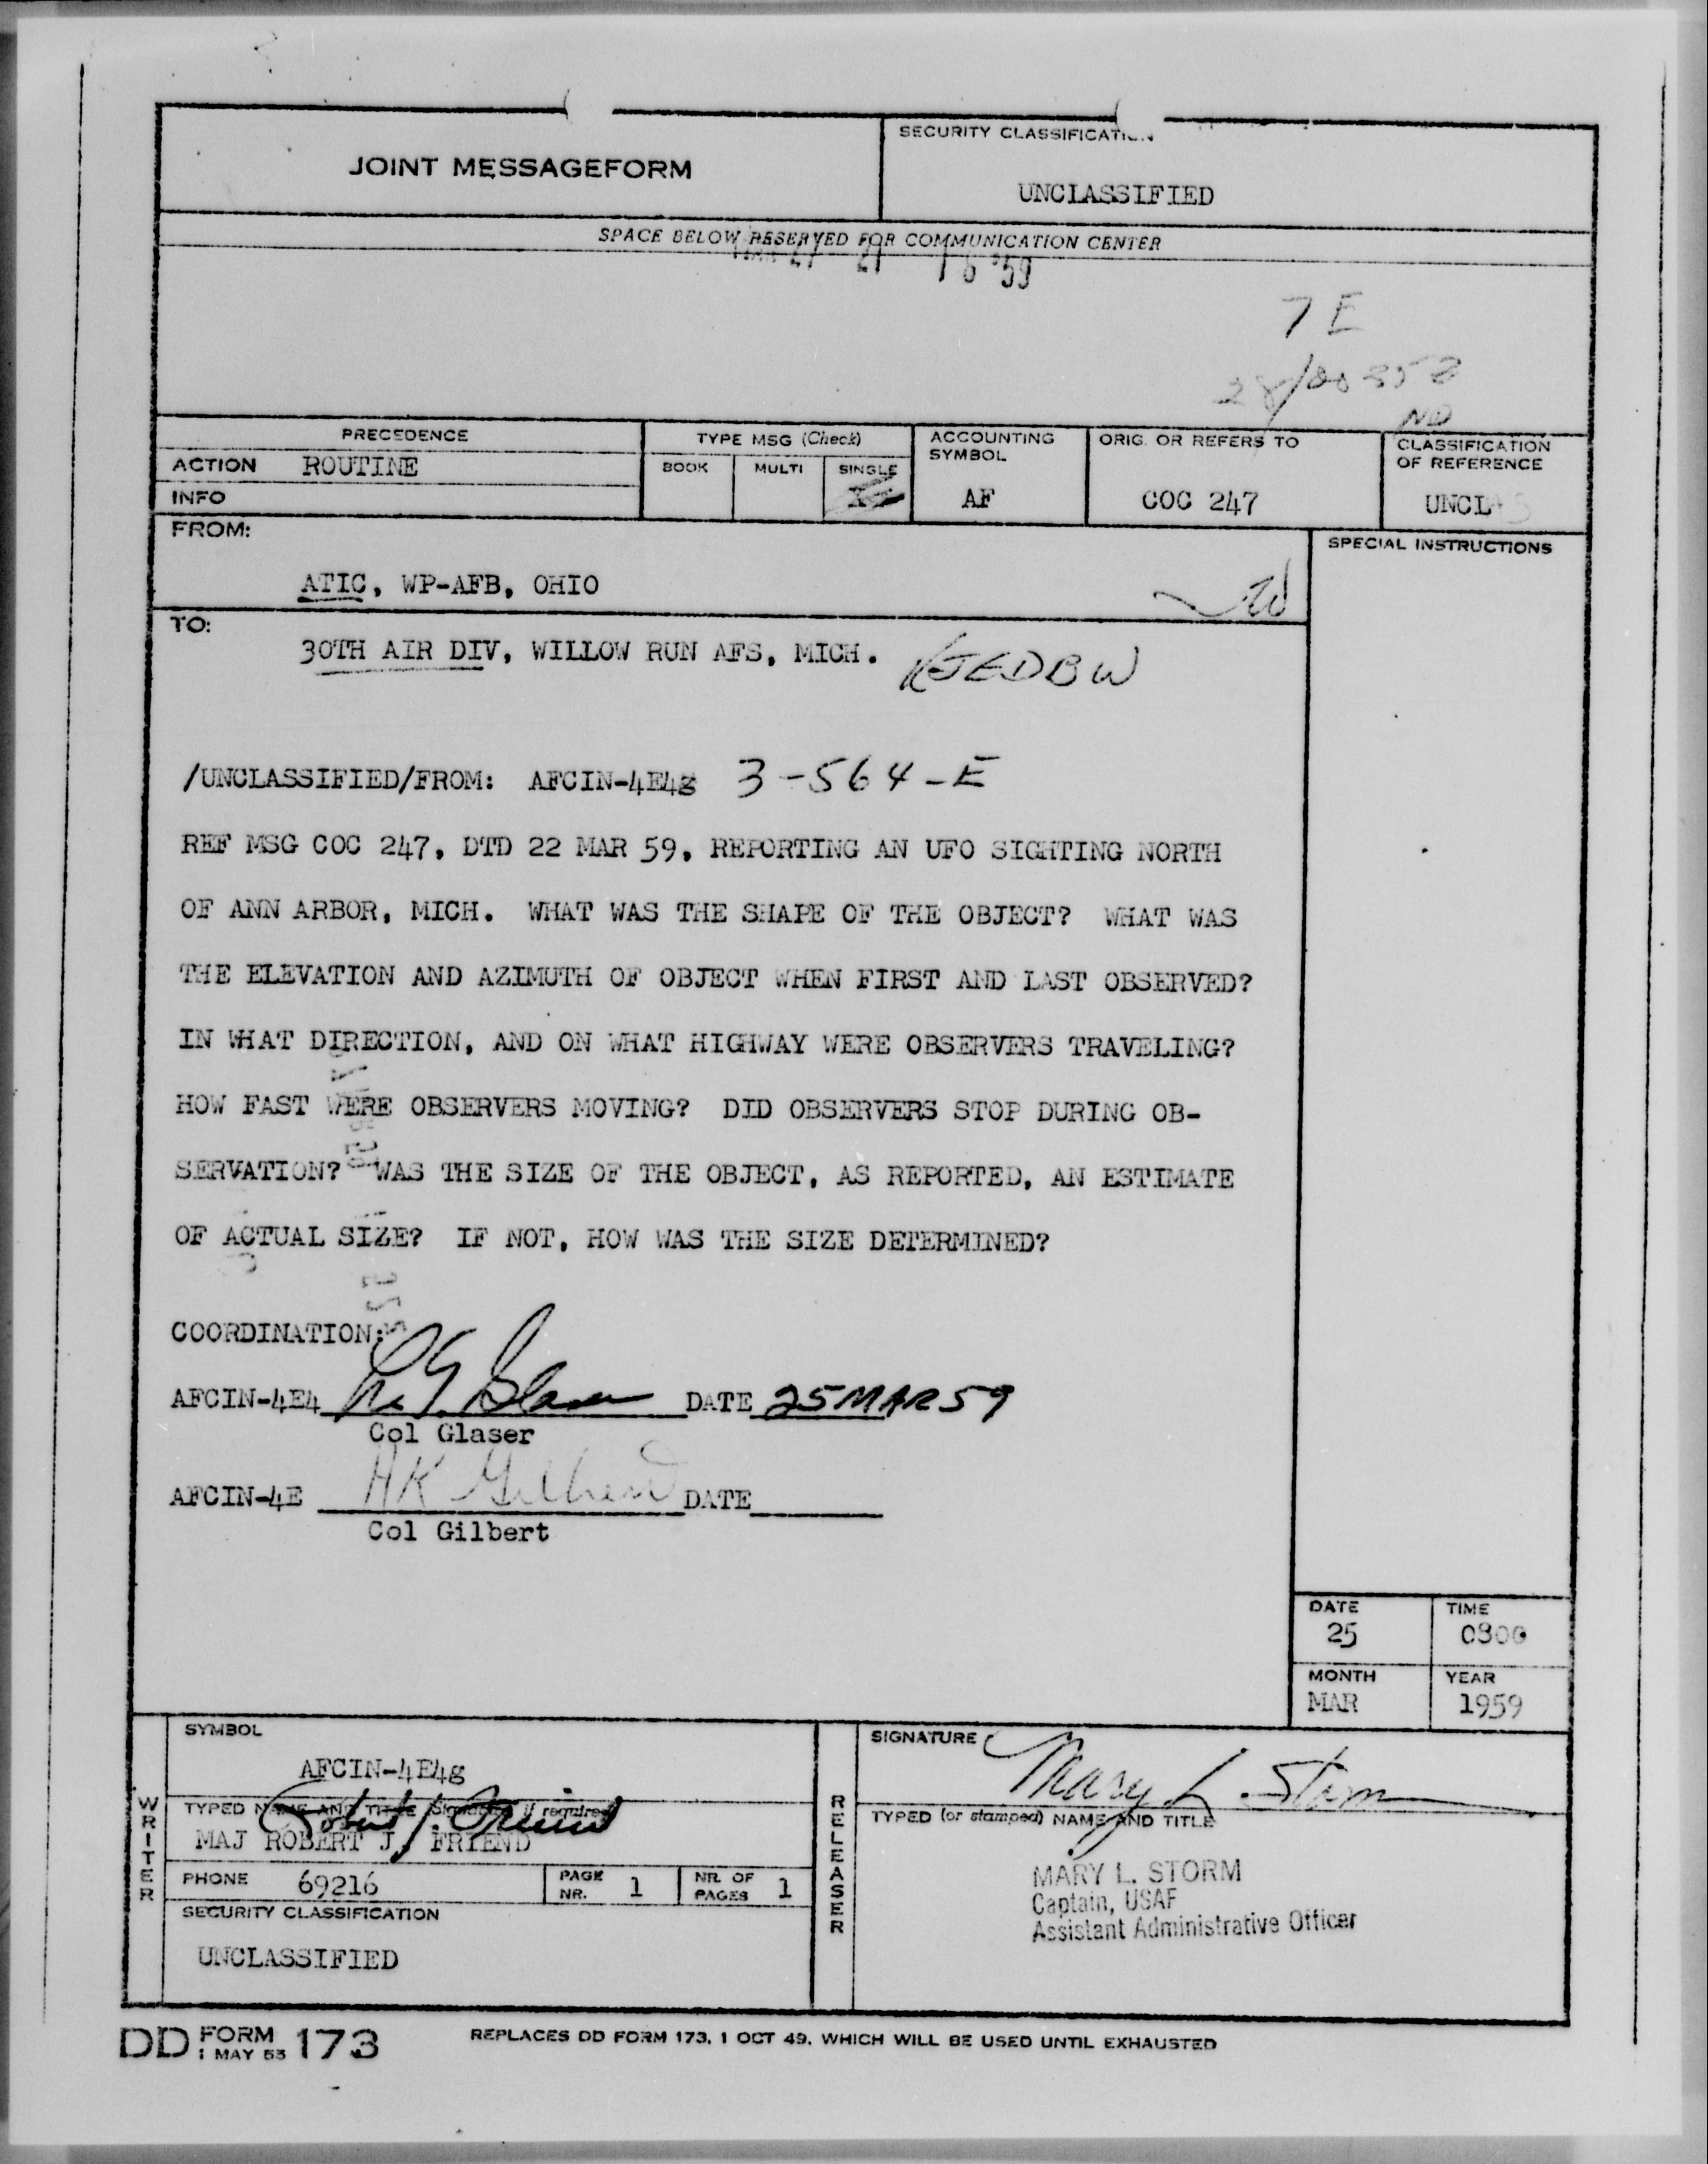 JOINT MESSAGEFORM
SECURITY CLASSIFICATION
UNCLASSIFIED
SPACE BELOW RESERVED FOR COMMUNICATION CENTER
'59
7 E
PRECEDENCE
ACTION ROUTINE
INFO
TYPE MSG (Check)
BOOK MULTI SINGLE
ACCOUNTING SYMBOL
AF
ORIG. OR REFERS TO
COC 247
CLASSIFICATION OF REFERENCE
UNCLAS
FROM:
ATIC, WP-AFB, OHIO
SPECIAL INSTRUCTIONS
TO:
30TH AIR DIV, WILLOW RUN AFS, MICH. RJEDBW
/UNCLASSIFIED/FROM: AFCIN-4E4g 3-564-E
REF MSG COC 247, DTD 22 MAR 59, REPORTING AN UFO SIGHTING NORTH
OF ANN ARBOR, MICH. WHAT WAS THE SHAPE OF THE OBJECT? WHAT WAS
THE ELEVATION AND AZIMUTH OF OBJECT WHEN FIRST AND LAST OBSERVED?
IN WHAT DIRECTION, AND ON WHAT HIGHWAY WERE OBSERVERS TRAVELING?
HOW FAST WERE OBSERVERS MOVING? DID OBSERVERS STOP DURING OB-
SERVATION? WAS THE SIZE OF THE OBJECT, AS REPORTED, AN ESTIMATE
OF ACTUAL SIZE? IF NOT, HOW WAS THE SIZE DETERMINED?
COORDINATION:
AFCIN-4E4 Glaser DATE 25 MAR 59
Col Glaser
AFCIN-4E HK Gilbert DATE
Col Gilbert
DATE TIME
25 0800
MONTH YEAR
MAR 1959
WRITER
SYMBOL
AFCIN-4E4g
TYPED NAME AND TITLE (Signature, if required)
Robert J. Friend
MAJ ROBERT J. FRIEND
PHONE 69216
PAGE NR. 1
NR. OF PAGES 1
SECURITY CLASSIFICATION
UNCLASSIFIED
RELEASER
SIGNATURE
Mary L. Storm
TYPED (or stamped) NAME AND TITLE
MARY L. STORM
Captain, USAF
Assistant Administrative Officer
DD FORM 1 MAY 53 173
REPLACES DD FORM 173, 1 OCT 49, WHICH WILL BE USED UNTIL EXHAUSTED